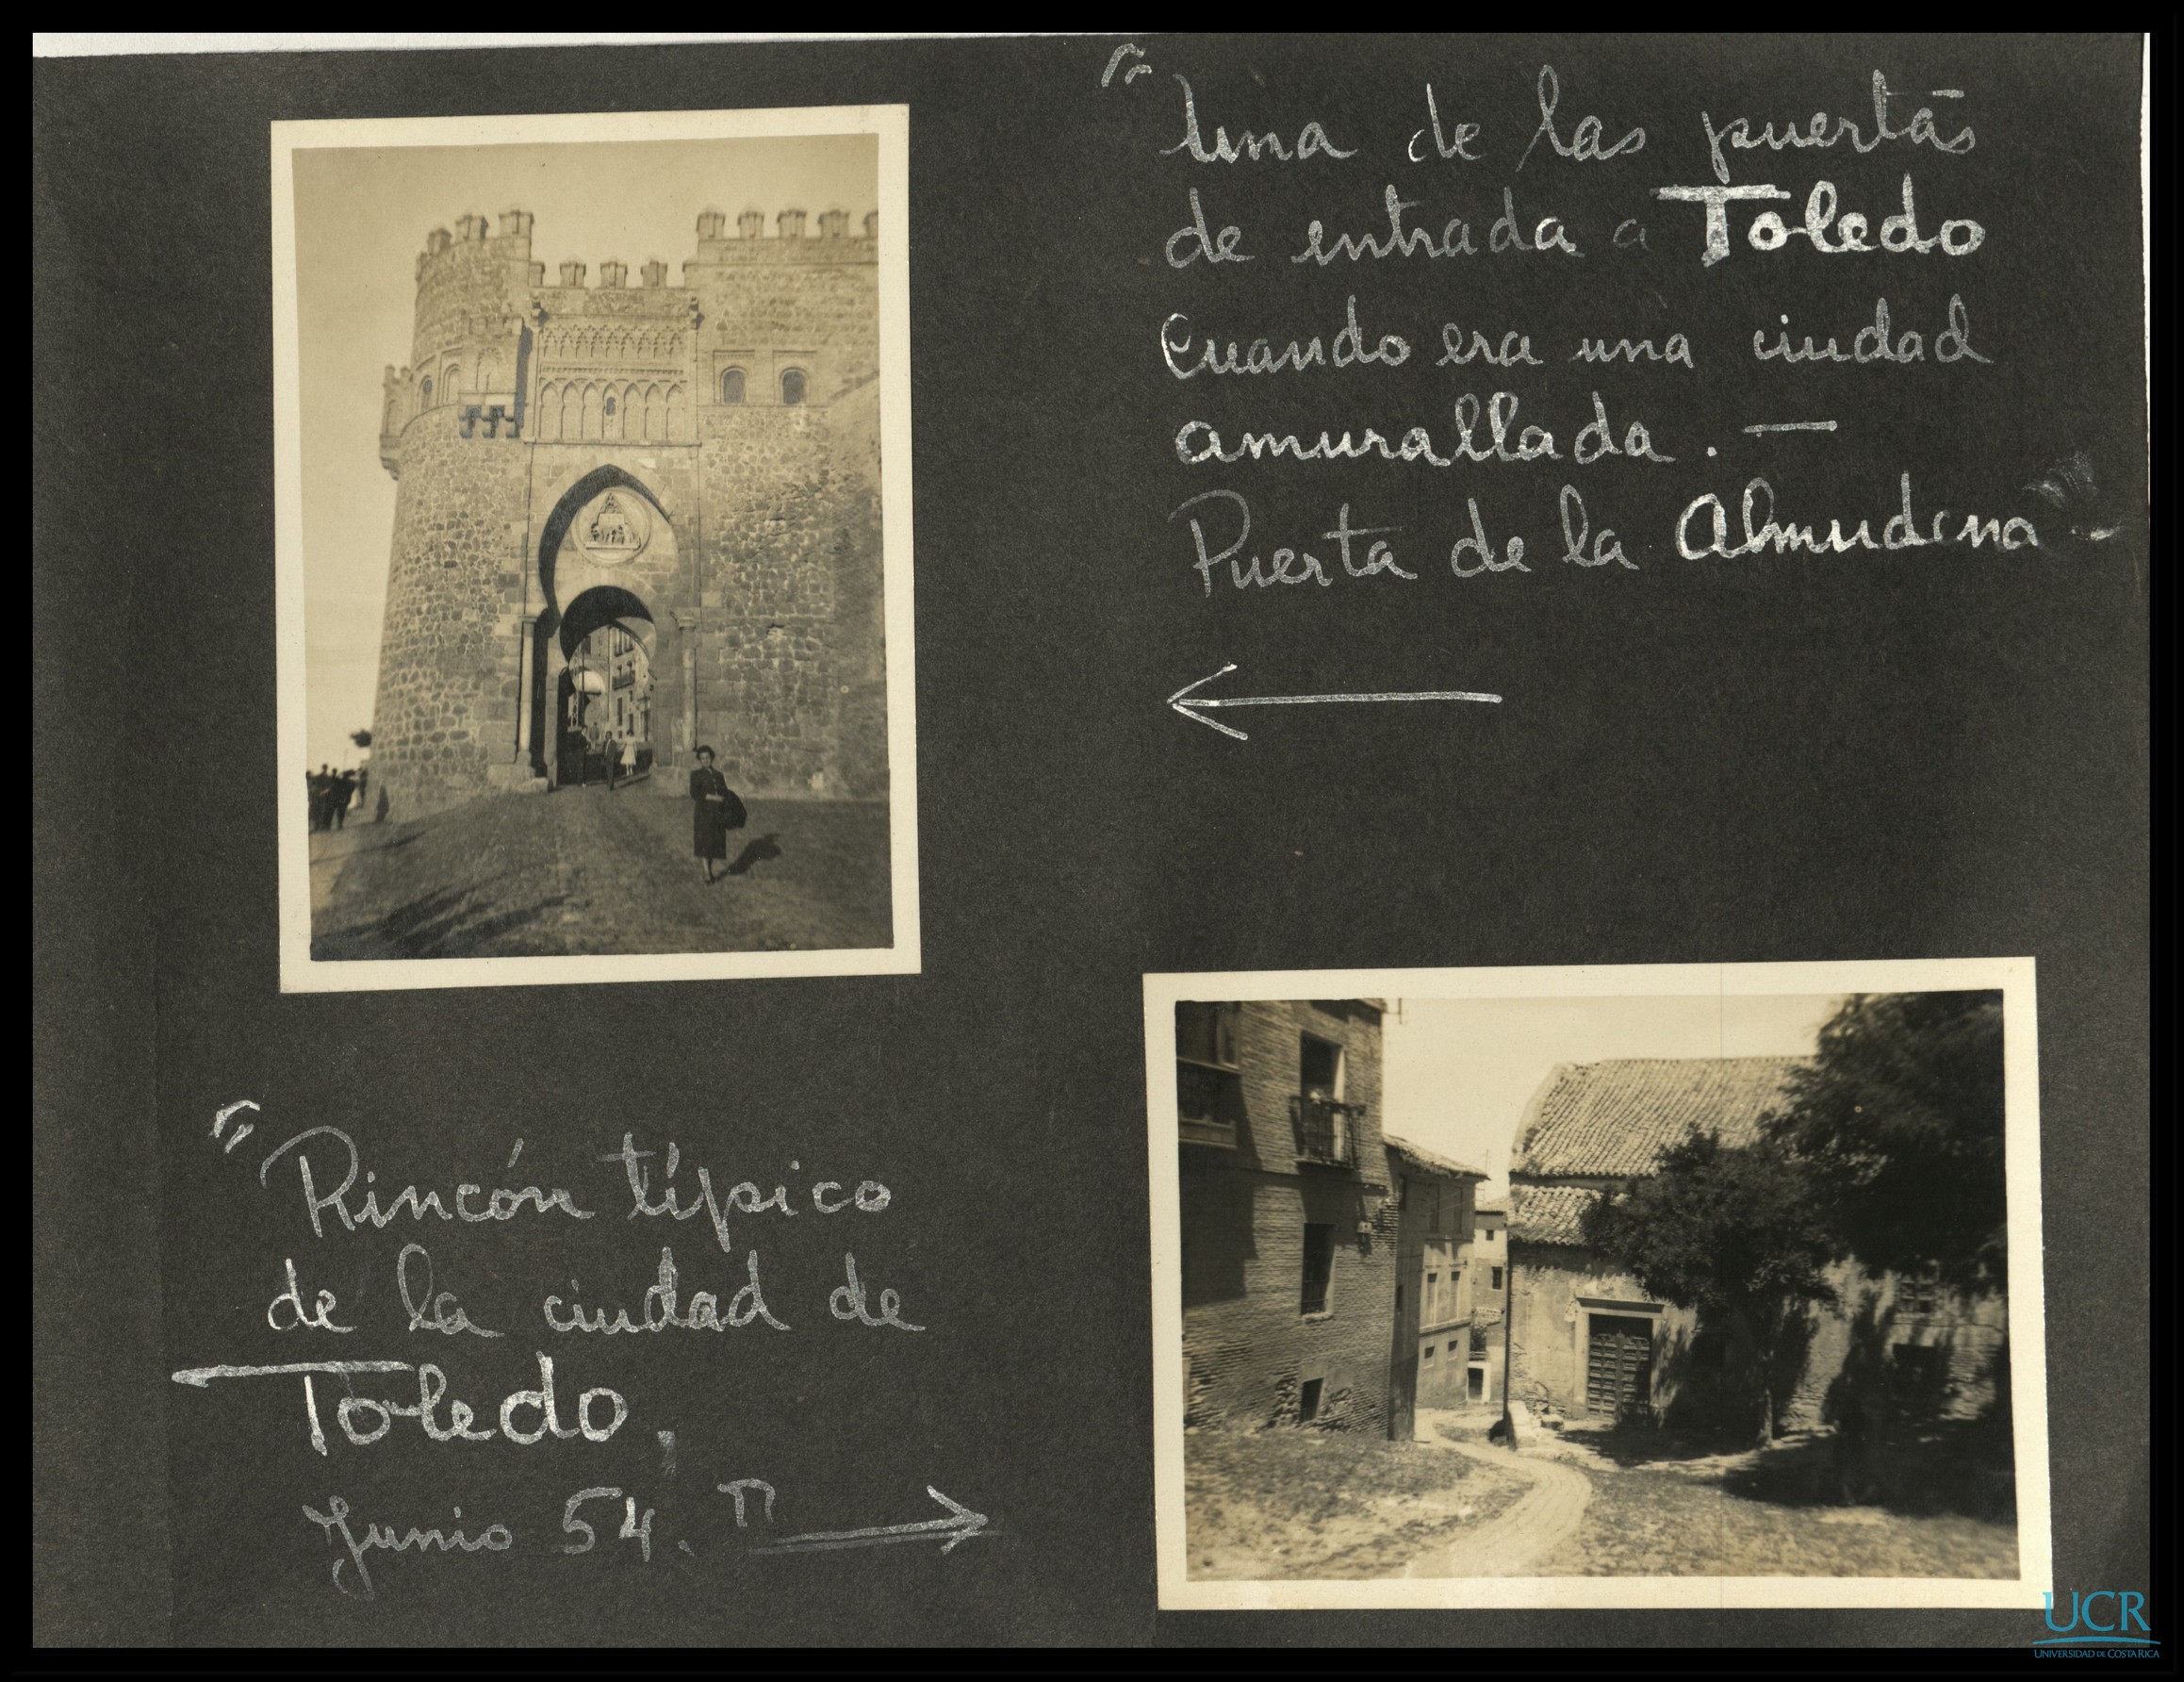 "Una de las puertas
de entrada a Toledo
Cuando era una ciudad
amurallada. —
Puerta de la Almudena"
"Rincón típico
de la ciudad de
Toledo,
Junio 54."
UCR
UNIVERSIDAD DE COSTA RICA